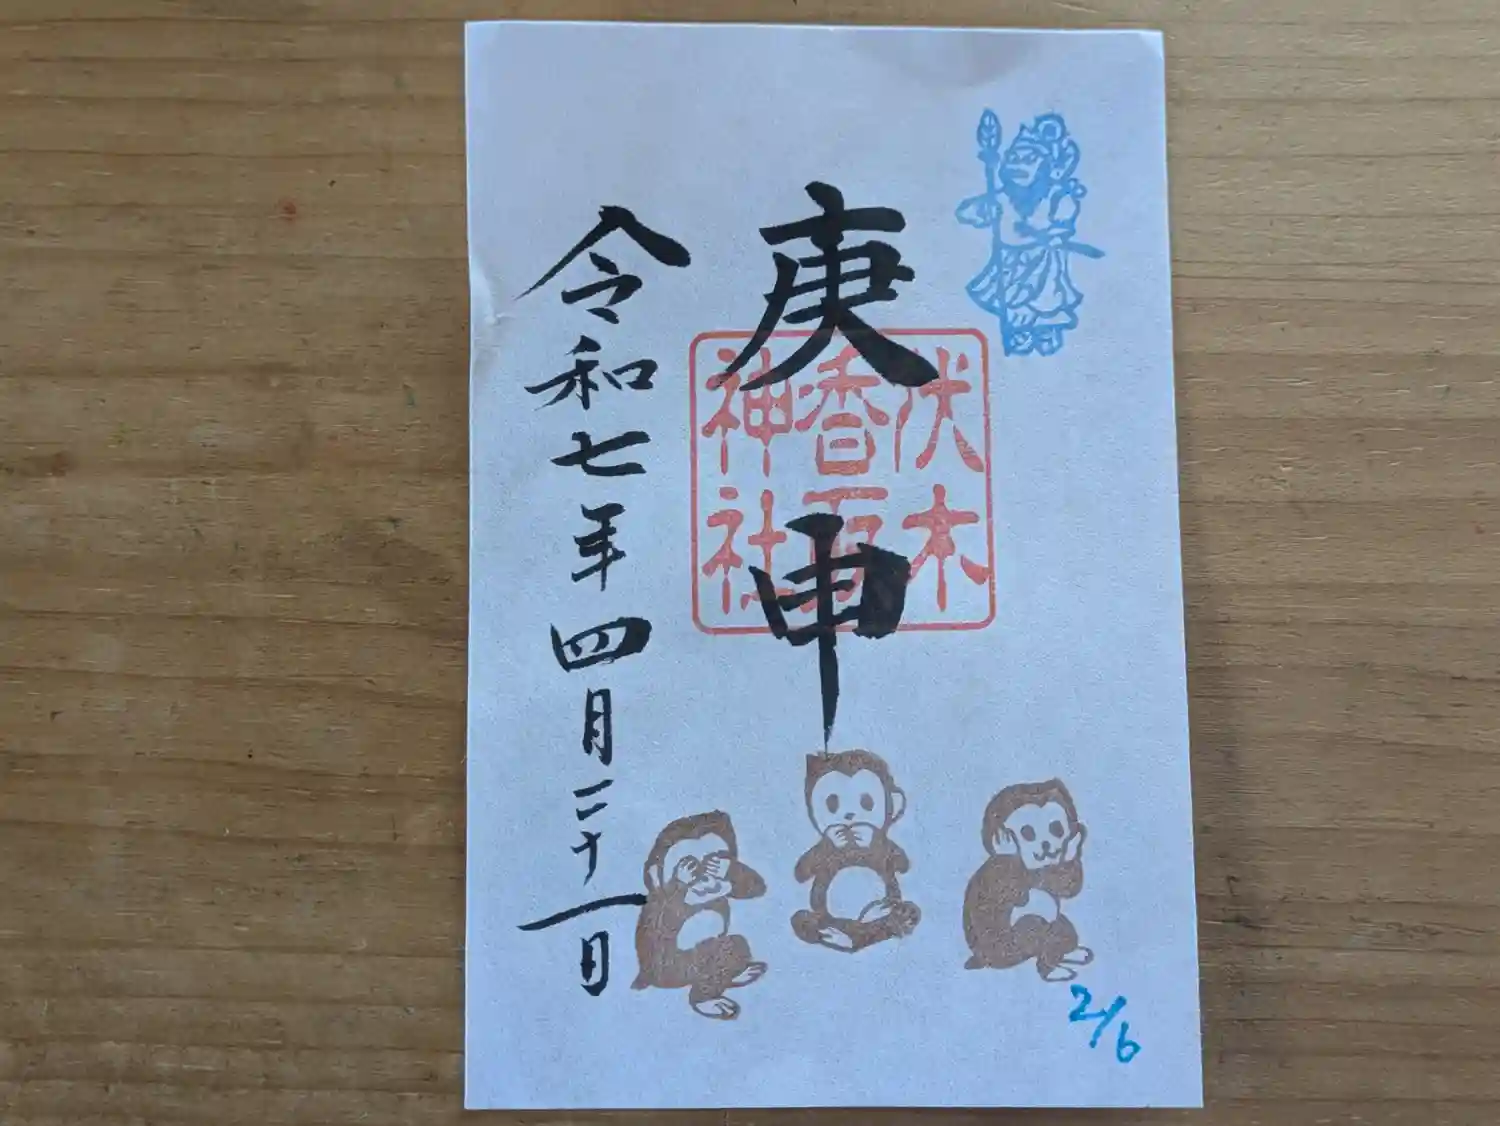 庚申
伏木
香取
神社
令和七年四月二十一日
2/6